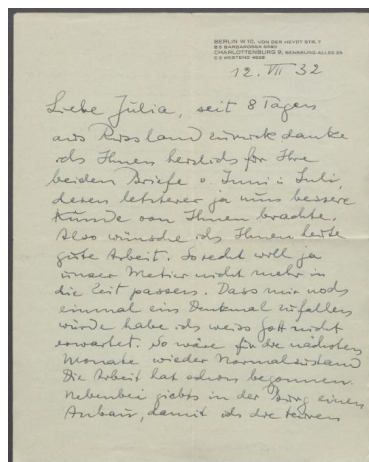 BERLIN W 10, VON DER HEYDT STR. 7
B 5 BARBAROSSA 6580
CHARLOTTENBURG 9, SENSBURG-ALLEE 25
C 3 WESTEND 4628
12. VII 32
Liebe Julia, seit 8 Tagen
aus Russland zurück danke
ich Ihnen herzlich für Ihre
beiden Briefe v. Juni u Juli,
deren letzterer ja nun bessere
Kunde von Ihnen brachte.
Also wünsche ich Ihnen heute
gute Arbeit. So recht will ja
unser Metier nicht mehr in
die Zeit passen. Dass mir noch
einmal ein Denkmal zufallen
würde habe ich weiss Gott nicht
erwartet. So wäre für die nächsten
Monate wieder Normalzustand
Die Arbeit hat schon begonnen.
Nebenbei giebts in der Burg einen
Anbau, damit ich die